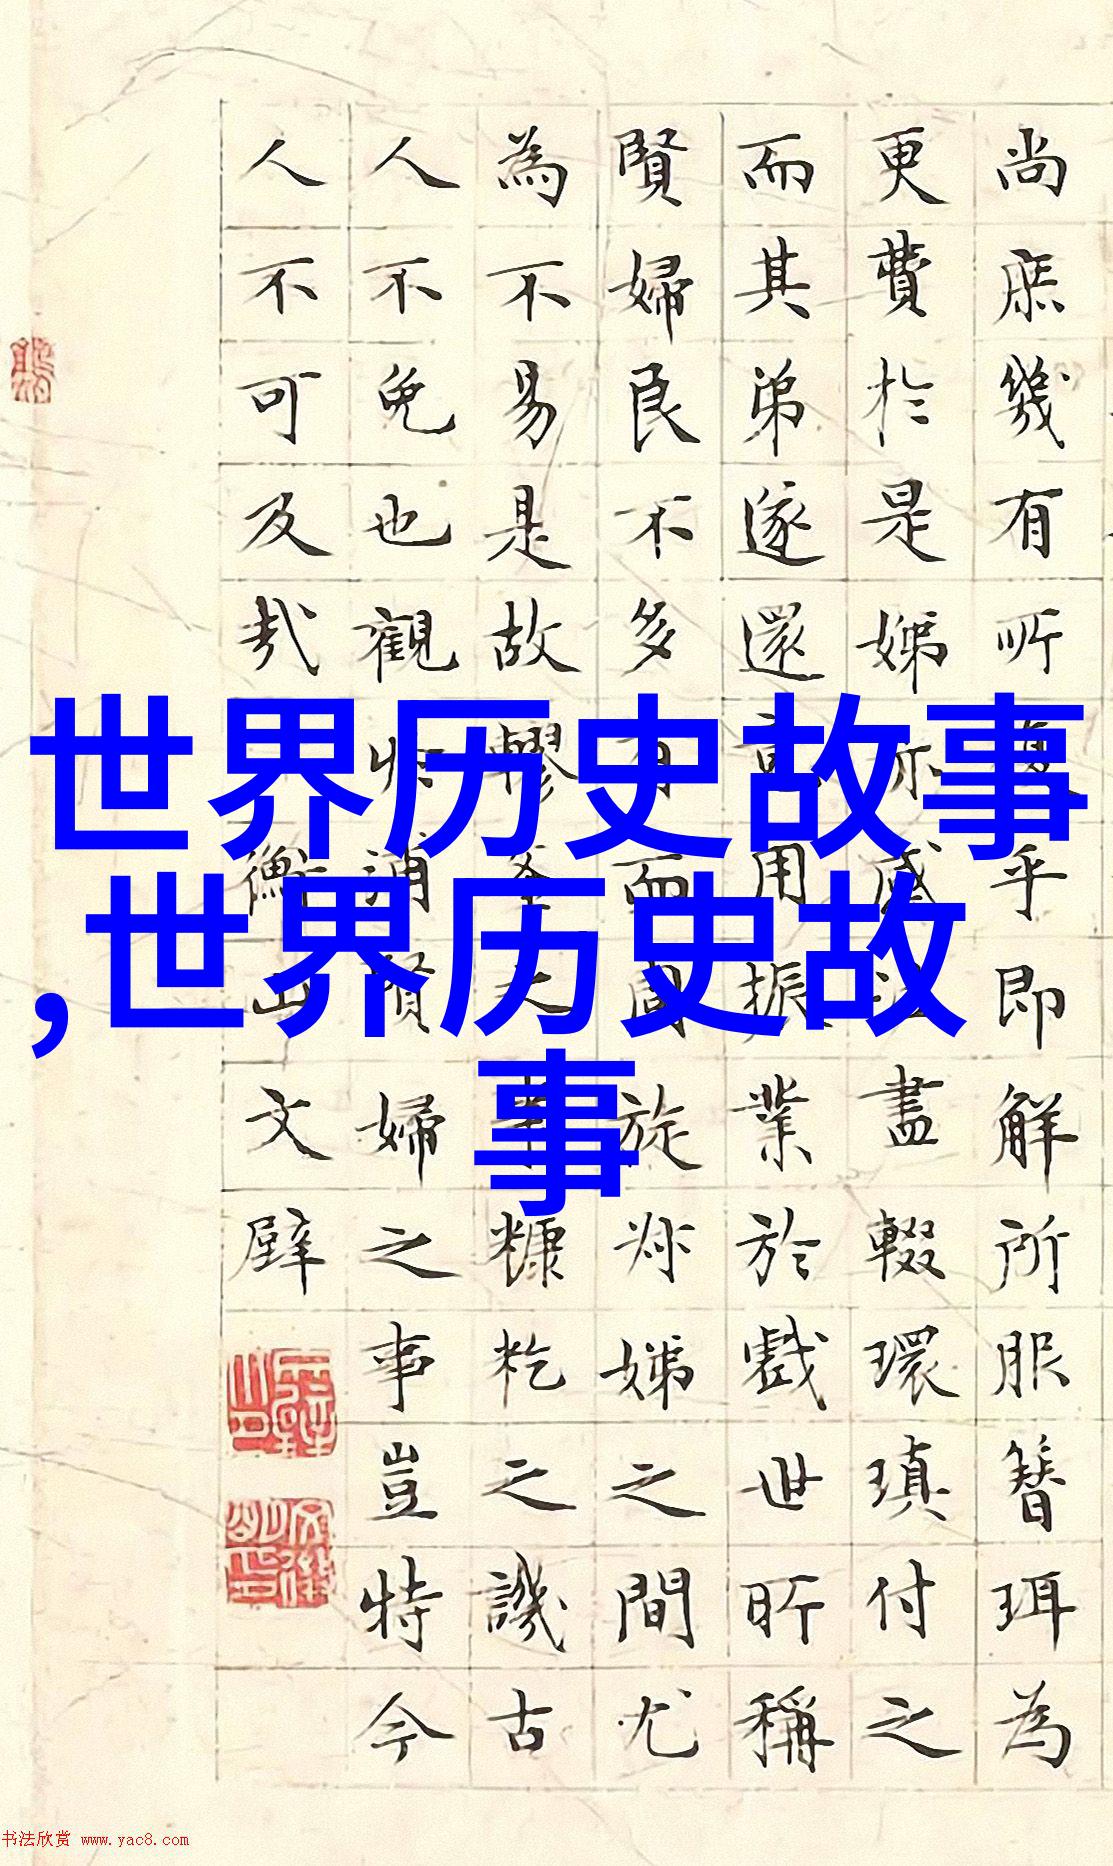 世界历史故事
,世界历史故
事
尚庶幾有所乎即解所服簪珥為
更費於是娣感盡輟環瑱付之
而其弟遂還用振業於戲世所稱
賢婦良不多有而周旋娣之間尤
為不易是故轑糠籺之譏古
人不免也觀浦賢婦之事豈特今
人不可及哉
衡山文壁
书法欣赏 www.yac8.com